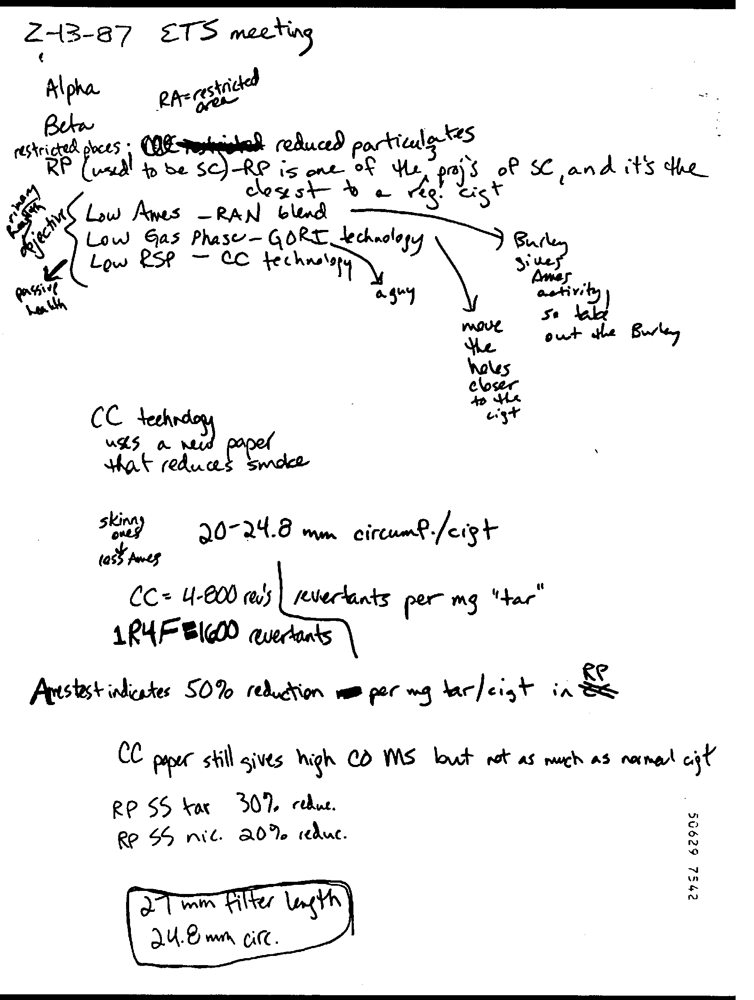 2-13-87 ETS meeting
Alpha
RA=restricted area
Beta
restricted places: reduced particulates
RP (used to be SC)-RP is one of the 3 proj's of SC, and it's the
closest to a reg. cigt
Primary health objective
Low Ames - RAN blend
Low Gas Phase - GORI technology
Low RSP - CC technology
passive health
a guy
move
the
holes
closer
to the
cigt
Burley
gives
Ames
activity
so take
out the Burley
CC technology
uses a new paper
that reduces smoke
skinny
ones
less Ames
20-24.8 mm circumf./cigt
CC = 4-800 rev's revertants per mg "tar"
1R4F=1600 revertants
Amestest indicates 50% reduction per mg tar/cigt in RP
CC paper still gives high CO MS but not as much as normal cigt
RP SS tar 30% reduc.
RP SS nic. 20% reduc.
27 mm filter length
24.8 mm circ.
50629 7542